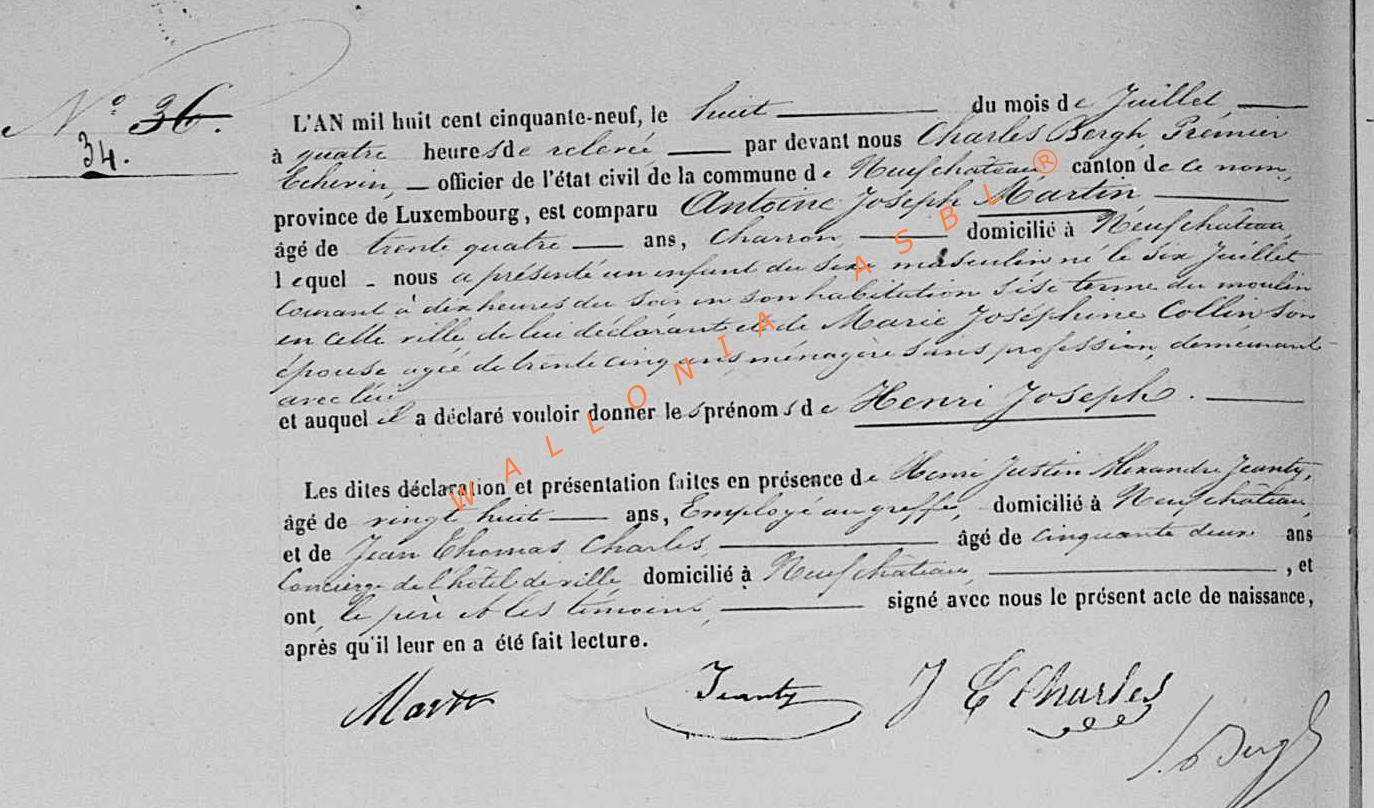 N° 36.
34.
L'AN mil huit cent cinquante-neuf, le huit du mois de Juillet
à quatre heures de relevée par devant nous Charles Bergh, Premier
Echevin, officier de l'état civil de la commune de Neufchâteau canton de ce nom,
province de Luxembourg, est comparu Antoine Joseph Martin
âgé de trente quatre ans, Charron, domicilié à Neufchâteau,
lequel nous a présenté un enfant du sexe masculin né le six Juillet
courant à dix heures du soir en son habitation sise terme du moulin
en cette ville de lui déclarant et de Marie Joséphine Collin son
épouse agée de trente cinq ans, ménagère sans profession, demeurant
avec lui
et auquel il a déclaré vouloir donner les prénoms de Henri Joseph.
Les dites déclaration et présentation faites en présence de Henri Justin Alexandre Jeanty,
âgé de vingt huit ans, Employé au greffe, domicilié à Neufchâteau,
et de Jean Thomas Charles, âgé de cinquante deux ans
Concierge de l'hôtel de ville domicilié à Neufchâteau, , et
ont, le père et les témoins, signé avec nous le présent acte de naissance,
après qu'il leur en a été fait lecture.
Martin Jeanty J T Charles
Bergh
WALLONIA ASBL ®